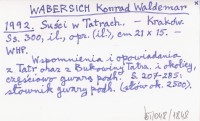 WABERSICH Konrad Waldemar
1992. Suści w Tatrach. – Kraków
Ss. 300, il., opr. (il.), cm 21 x 15. –
WHP.
Wspomnienia i opowiadania
z Tatr oraz z Bukowiny Tatrz. i okolicy,
częściowo gwarą podh. S. 207-285:
słownik gwary podh. (słów ok. 2500).